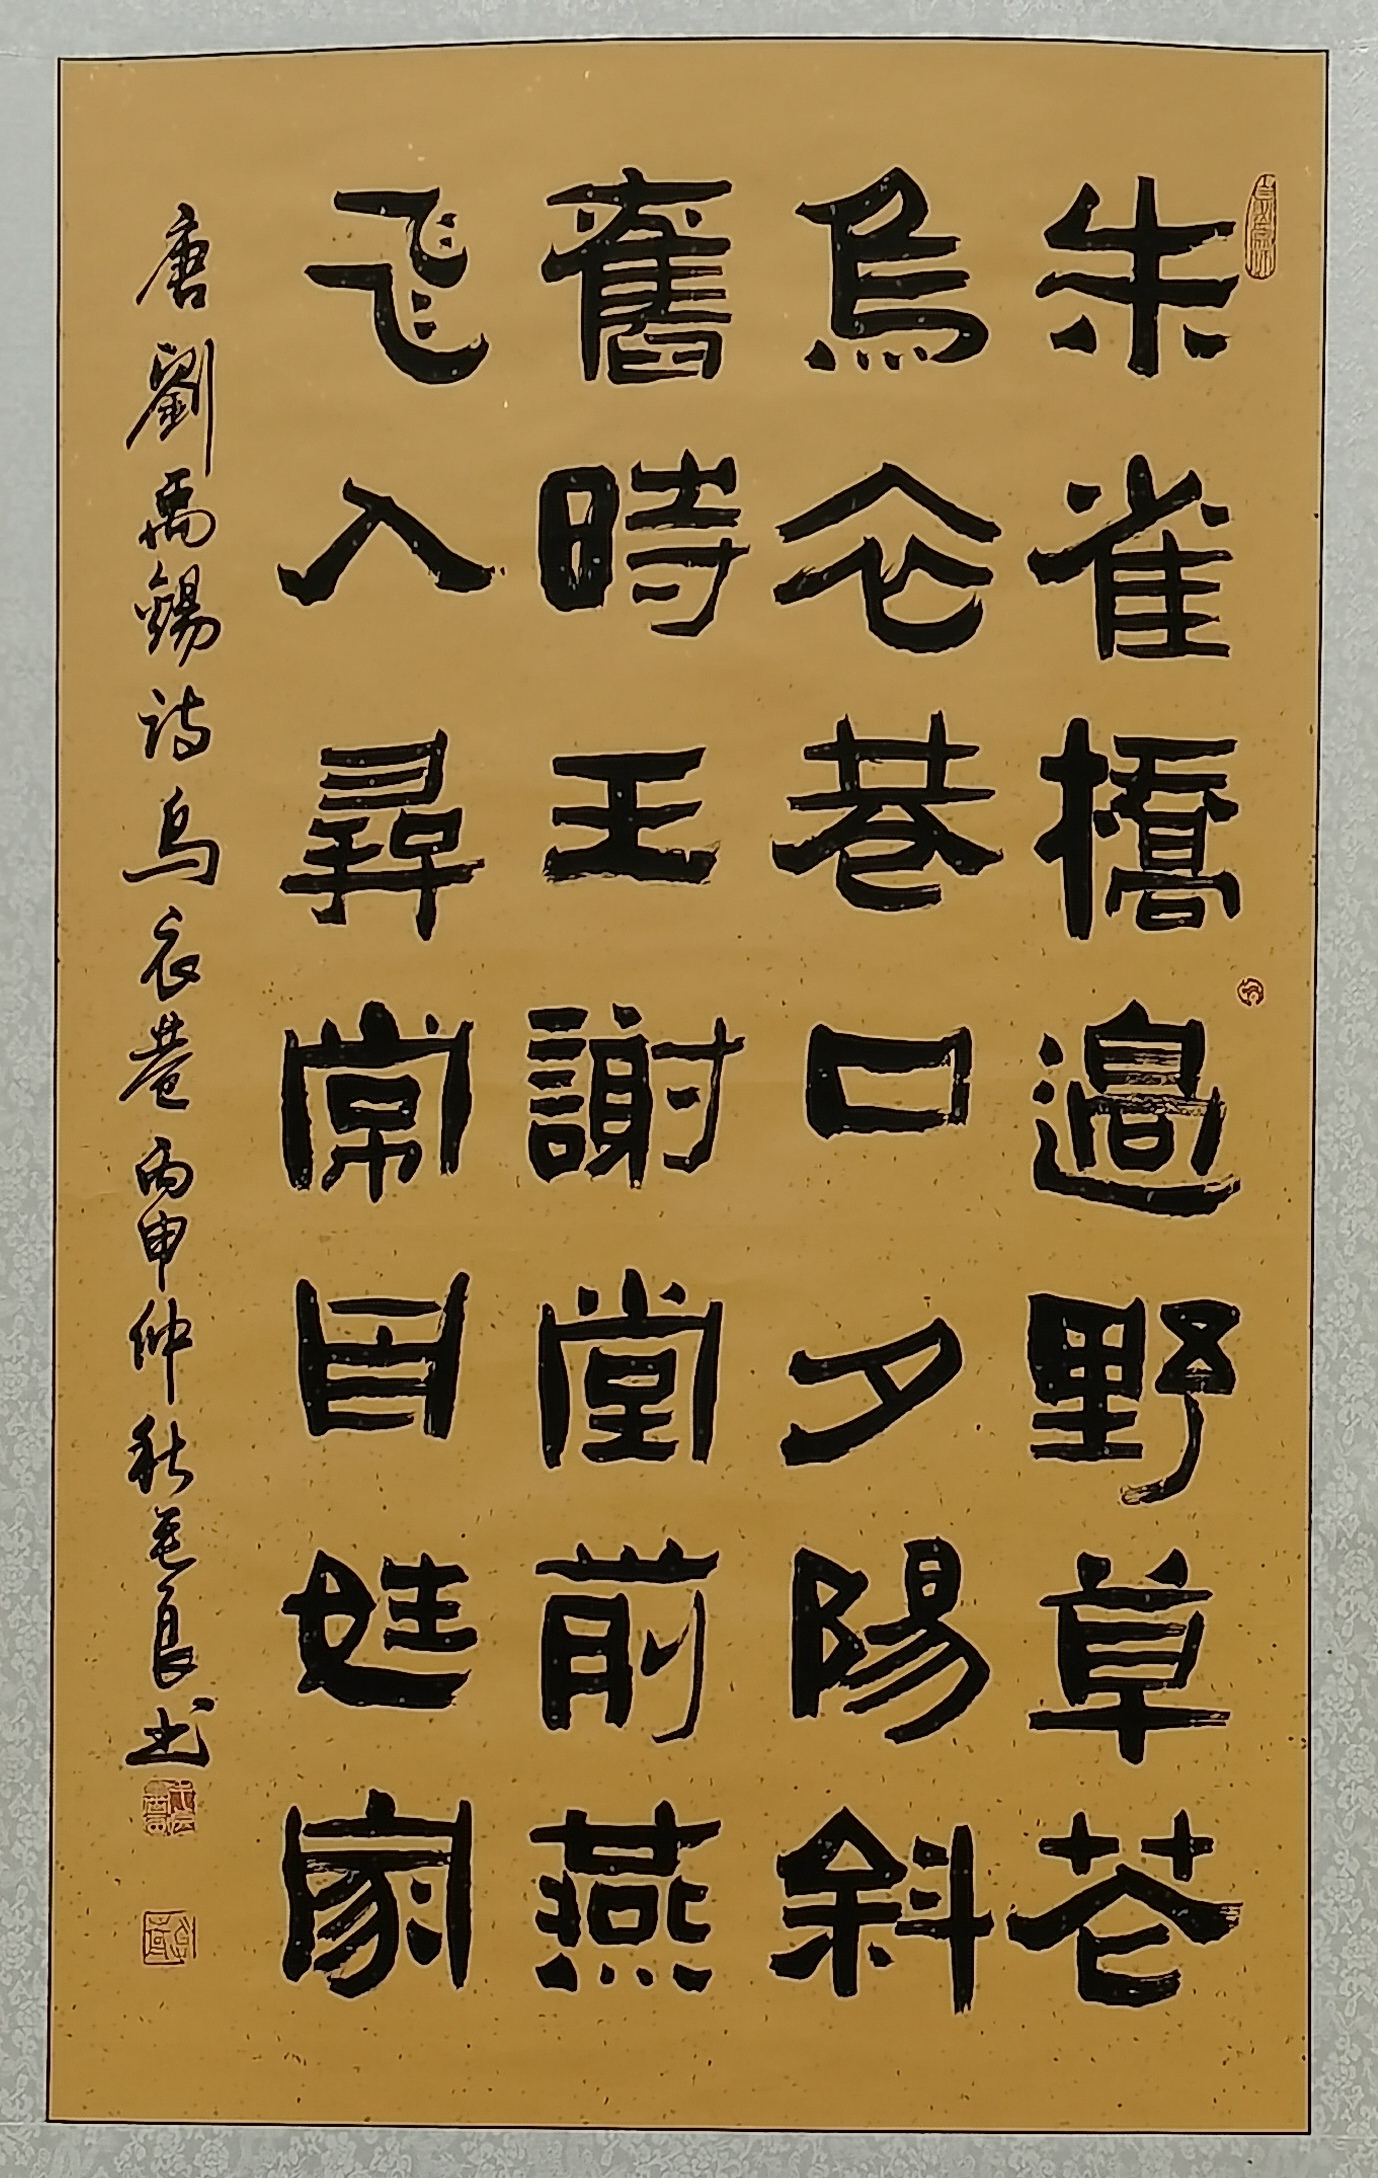 朱雀橋邊野草花
烏衣巷口夕陽斜
舊時王謝堂前燕
飞入尋常百姓家
唐劉禹錫詩烏衣巷丙申仲秋良书